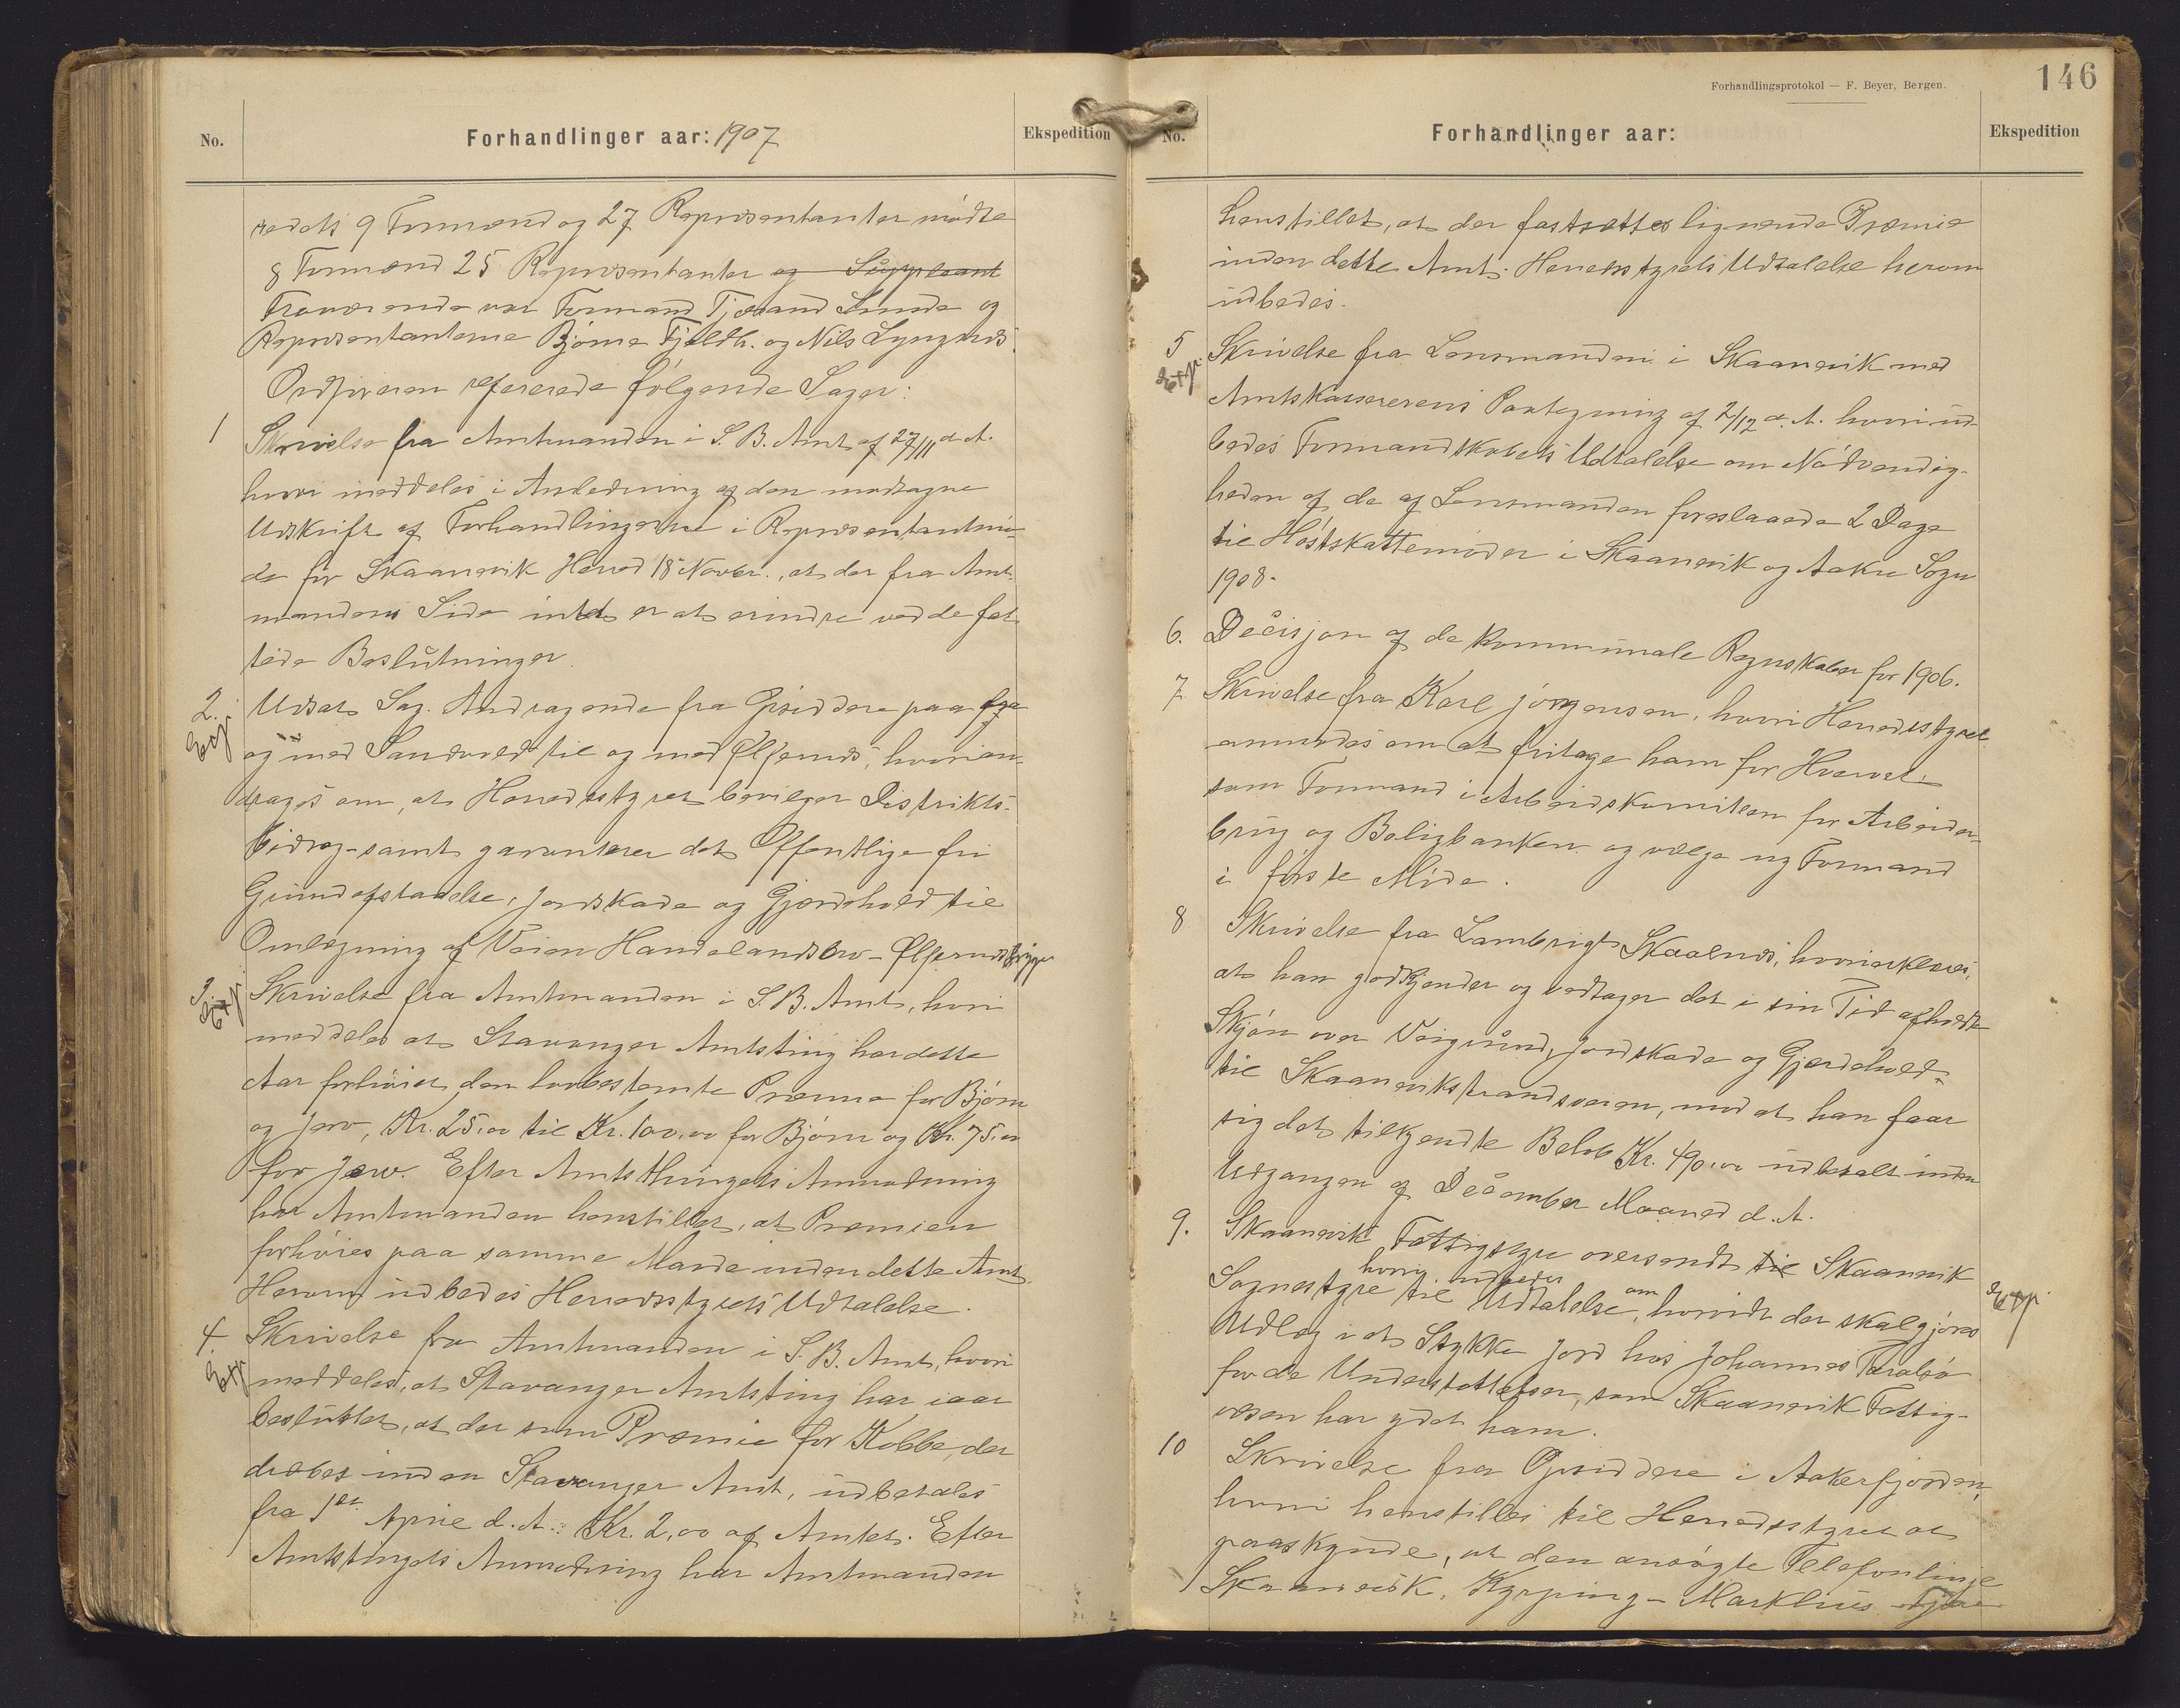 No.
Forhandlinger aar: 1907
Ekspedition
redets 9 Formænd og 27 Repræsentanter mødte
8 Formænd 25 Repræsentanter og Suppleant
Fraværende var Formand Tjerand Lunde og
Repræsentanterne Bjørne Fjeldh. og Nils Lyngnæs.
Ordføreren refererede følgende Sager:
1 Skrivelse fra Amtmanden i S. B. Amt af 27/11 d. A.
hvori meddeles i Anledning af den modtagne
Udskrift af Forhandlingerne i Repræsentantmø-
de for Skaanevik Herred 18 Novbr., at der fra Amt-
mandens Side intet er at erindre ved de fat-
tede Beslutninger.
2. Udsat Sag. Andragende fra Opsiddere paa fra
Exp.
og med Sandvold til og med Ølfernæs, hvori an-
drages om, at Herredsstyret bevilger Distrikts-
bidrag samt garanterer det Offentlige fri
Grundafstaaelse, Jordskade og Gjærdehold til
Omlægning af Veien Handelandsbro - Ølfernæsbrygge
3. Skrivelse fra Amtmanden i S. B. Amt, hvori
Exp.
meddeles at Stavanger Amtsting har dette
Aar forhøiet den lovbestemte Præmie for Bjørn
og Jærv, Kr. 25,00 til Kr. 100,00 for Bjørn og Kr. 75,00
for Jærv. Efter Amtsthingets Anmodning
har Amtmanden henstillet, at Præmien
forhøies paa samme Maade inden dette Amt.
Herom udbedes Herredsstyrets Udtalelse.
4. Skrivelse fra Amtmanden i S. B. Amt, hvori
Exp.
meddeles, at Stavanger Amtsting har iaar
besluttet, at der som Præmie for Kobbe, der
dræbes inden Stavanger Amt, udbetales
fra 1ste April d. A.: Kr. 2,00 af Amtet. Efter
Amtstingets Anmodning har Amtmanden
Forhandlingsprotokol — F. Beyer, Bergen.
146
No.
Forhandlinger aar:
Ekspedition
henstillet, at der fastsættes lignende Præmie
inden dette Amt. Herredsstyrets Udtalelse herom
udbedes.
5 Skrivelse fra Lensmanden i Skaanevik med
Exp.
Amtskassererens Paategning af 2/12 d. A. hvori ud-
bedes Formandskabets Udtalelse om Nødvendig-
heden af de af Lensmanden foreslaaede 2 Dage
til Høstskattemøder i Skaanevik og Aakre Sogn
1908.
6. Decisjon af de kommunale Regnskaber for 1906.
7. Skrivelse fra Karl Jørgensen, hvori Herredsstyret
anmodes om at fritage ham for Hvervet
som Formand i Arbeidskomiteen for Arbeider-
brug og Boligbanken og vælge ny Formand
i første Møde.
8 Skrivelse fra Lambrigt Skaalnæs, hvori erklæres,
at han godkjender og vedtager det i sin Tid afholdte
Skjøn over Veigrund, Jordskade og Gjærdehold
til Skaanevikstrandsveien, mod at han faar
sig det tilkjendte Beløb Kr. 490,00 udbetalt inden
Udgangen af December Maaned d. A.
9. Skaanevik Fattigstyre oversendt til Skaanevik
hvori udbedes
Sognestyre til Udtalelse om, hvorvidt der skal gjøres
Exp.
Udlæg i et Stykke Jord hos Johannes Taralsø
for de Understøttelser, som Skaanevik Fattig-
væsen har ydet ham.
10 Skrivelse fra Opsiddere i Aakrefjorden,
hvori henstilles til Herredsstyret at
paaskynde, at den ansøgte Telefonlinje
Skaanevik, Kyrping - Markhus